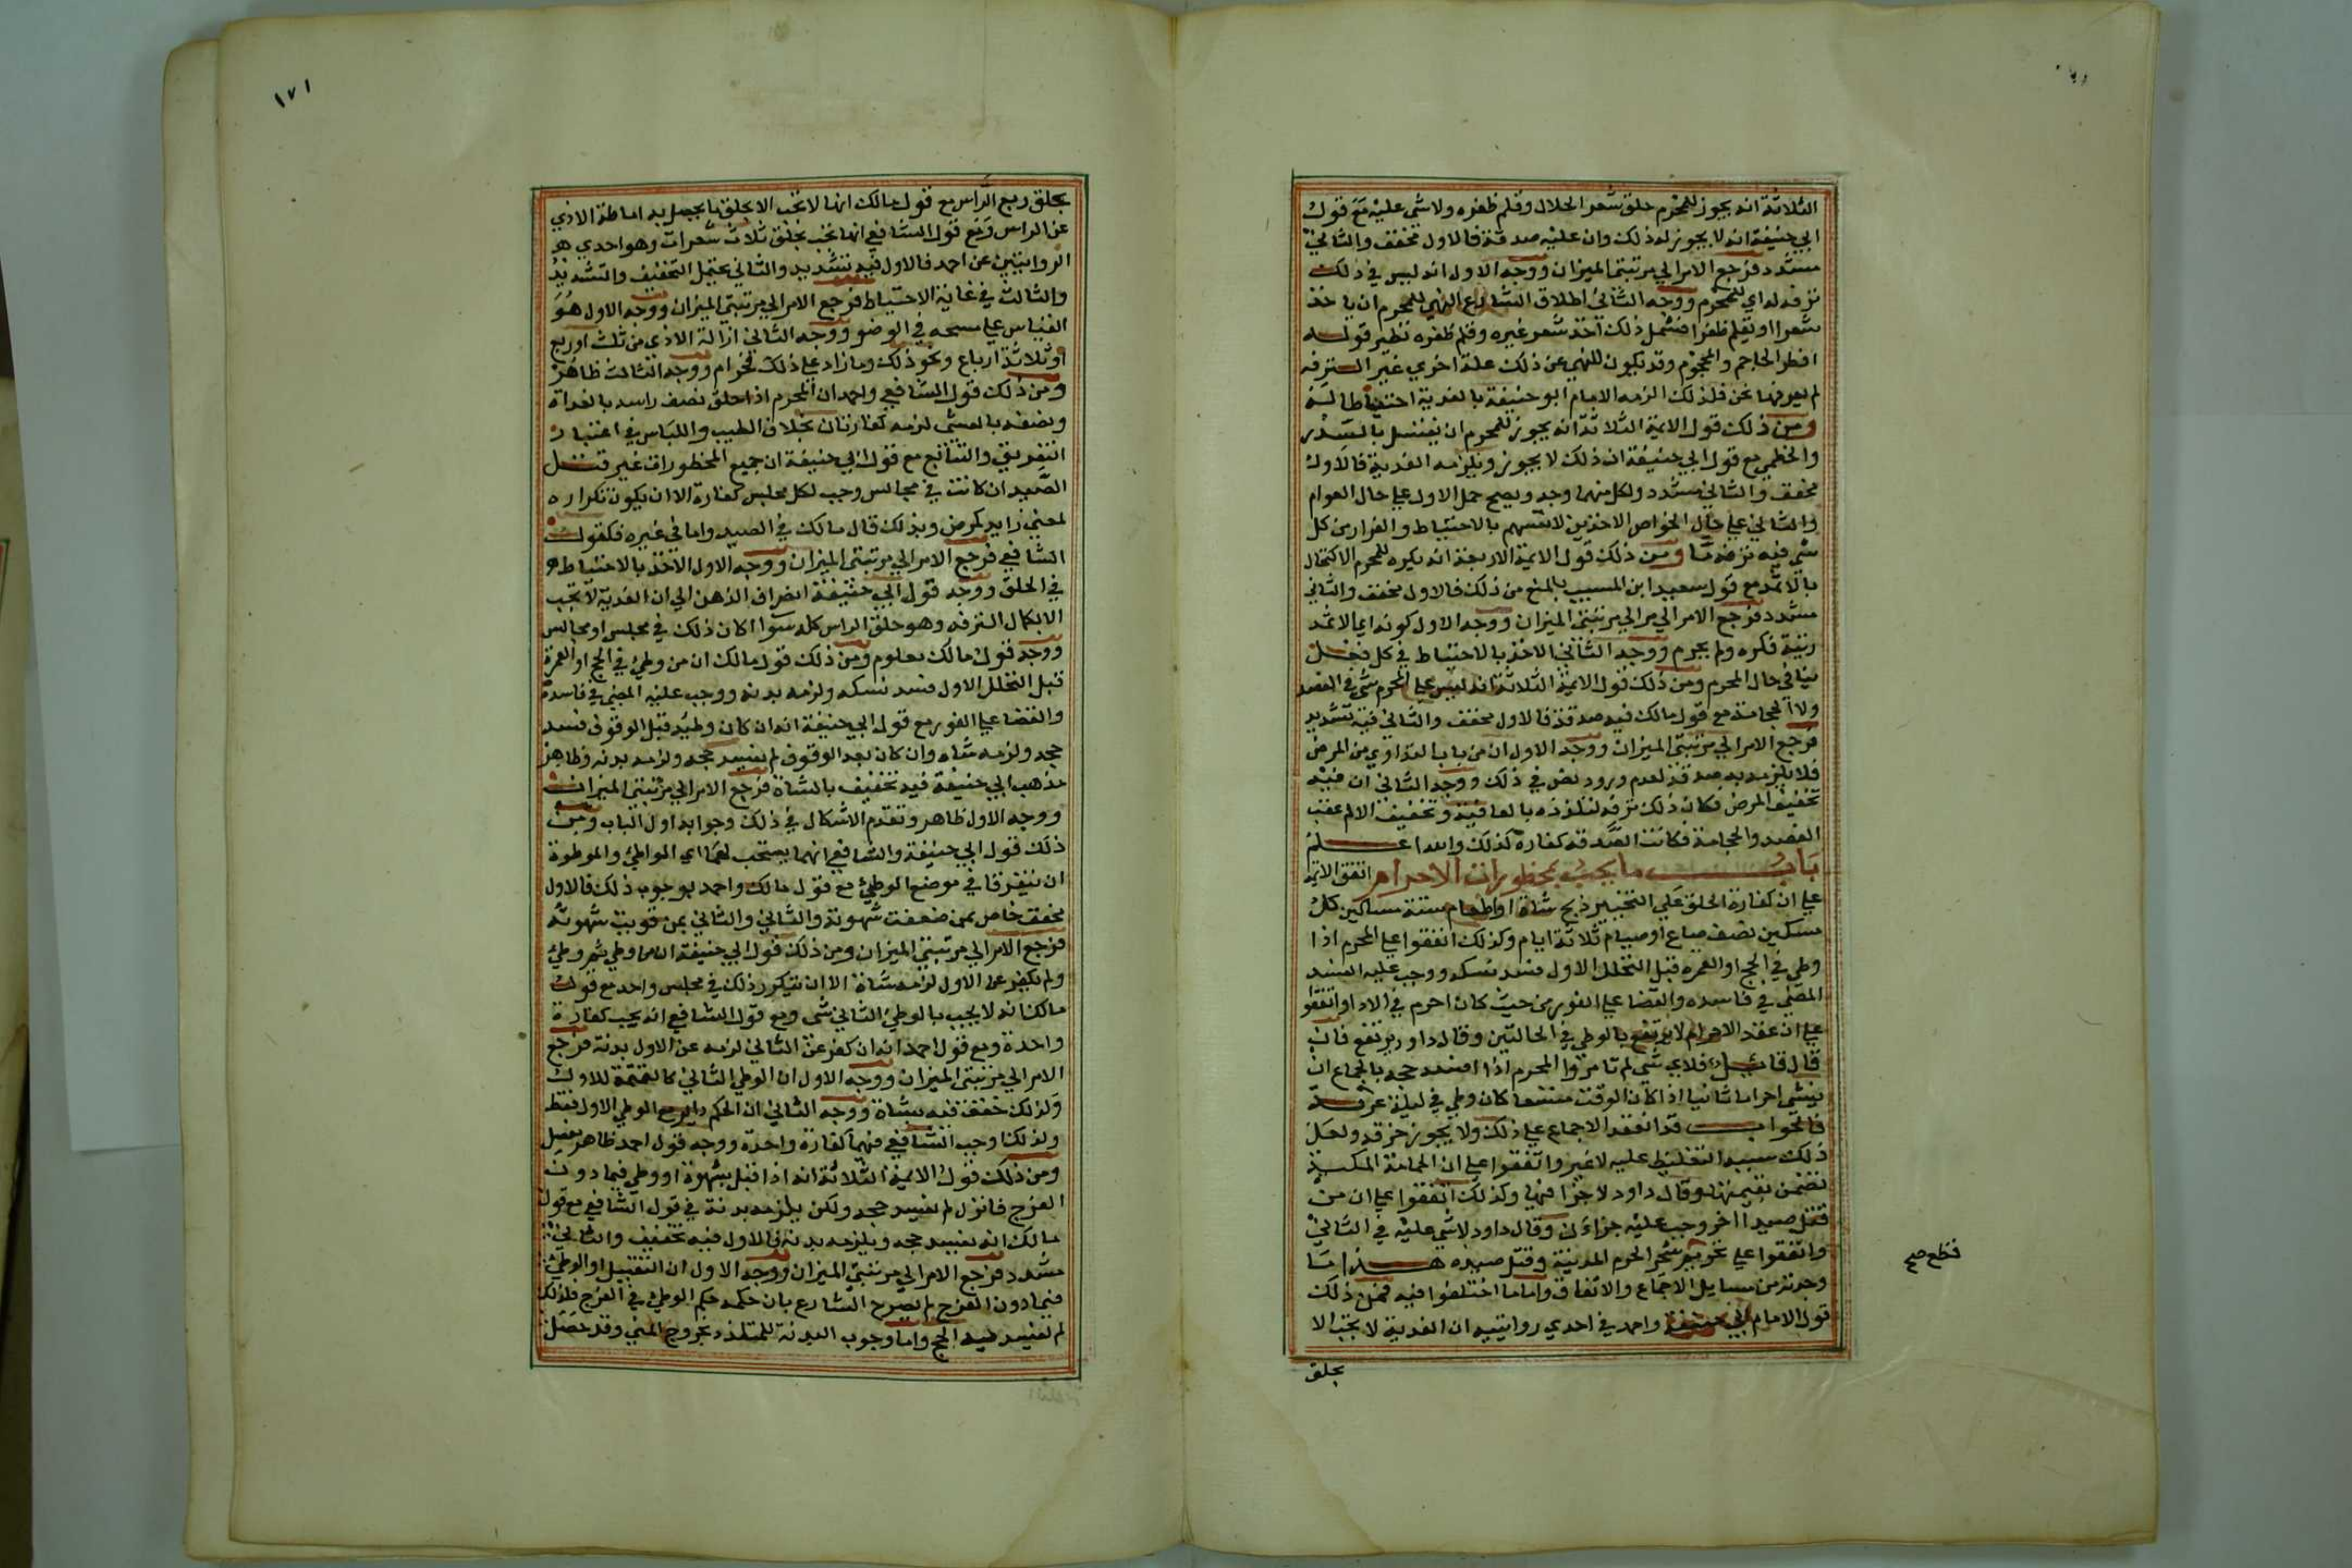 الثلاثة انه يجوز للمحرم حلق شعر الحلال وقلم ظفره ولا شي عليه مع قول
ابي حنيفة انه لا يجوز له ذلك وان عليه صدقة فالاول مخفف والثاني
مشدد فرجع الامر الي مرتبتي الميزان ووجه الاول انه ليس في ذلك
ترفه له اي للمحرم ووجه الثاني اطلاق الشارع النهي للمحرم ان ياخذ
شعرا او يقلم ظفرا فشمل ذلك اخذ شعر غيره وقلم ظفره نظير قوله
افطر الحاجم والمحجوم وقد يكون للنهي عن ذلك علة اخري غير الترفه
لم يعرفها نحن فلذلك الزمه الامام ابو حنيفة بالفدية احتياطا له
ومن ذلك قول الايمة الثلاثة انه يجوز للمحرم ان يغتسل بالسدر
والخطمي مع قول ابي حنيفة ان ذلك لا يجوز ويلزمه الفدية فالاول
مخفف والثاني مشدد ولكل منهما وجه ويصح حمل الاول علي حال العوام
والثاني علي حال الخواص الاخذين لانفسهم بالاحتياط والفرار من كل
شي فيه ترفه ما ومن ذلك قول الايمة الاربعة انه يكره للمحرم الاكتحال
بالاثمد مع قول سعيد ابن المسيب بالمنع من ذلك فالاول مخفف والثاني
مشدد فرجع الامر الي مرالي مرتبتي الميزان ووجه الاول كونه اي الاثمد
زينة فكره ولم يحرم ووجه الثاني الاخذ بالاحتياط في كل فعل
ينافي حال المحرم ومن ذلك قول الايمة الثلاثة انه ليس علي المحرم شي في الفصد
ولا الحجامة مع قول مالك فيه صدقة فالاول مخفف والثاني فيه تشديد
فرجع الامر الي مرتبتي الميزان ووجه الاول ان من باب التداوي من المرض
فلا يلزمه به صدقة لعدم ورود نص في ذلك ووجه الثاني ان فيه
تخفيف المرض فكان ذلك ترفه لتلذذه بالعافية وتخفيف الالم عقب
الفصد والحجامة فكانت الصدقة كفارة كذلك والله اعلم
باب ما يجب بمحظورات الاحرام اتفق الايمة
علي ان كفارة الحلق علي التخيير ذبح شاة او اطعام ستة مساكين كل
مسكين نصف صاع او صيام ثلاثة ايام وكذلك اتفقوا علي المحرم اذا
وطي في الحج او العمره قبل التحلل الاول فسد نسكه ووجب عليه
المضي في فاسده والقضا علي الفور من حيث كان احرم في الادا واتفقوا
علي ان عقد الاحرام لا يرتفع بالوطي في الحالتين وقال داود يرتفع فان
قال قايل فلاي شي لم تامروا المحرم اذا افسد حجه بالجماع ان
ينشي احراما ثانيا اذا كان الوقت متسعا كان وطي في ليلة عرفة
فالجواب قد انعقد الاجماع علي ذلك ولا يجوز خرقه ولعل
ذلك سببه التغليظ عليه لا غير واتفقوا علي ان الحمامة المكية
تضمن بقيمتها وقال داود لا جزا فيها وكذلك اتفقوا علي ان من
قتل صيدا اخر وجب عليه جزاءان وقال داود لا شي عليه في الثاني
واتفقوا علي تحريم شجر الحرم المدينية وقتل صيده هذا ما
وجدته من مسايل الاجماع والاتفاق واما ما اختلفوا فيه فمن ذلك
قول الامام ابي حنيفة واحمد في احدي روايتيه ان الفدية لا تجب الا
يحلق
قطع صح
١٧١
بحلق ربع الراس مع قول مالك انها لا تجب الا بحلق ما يحصل به اماطة الاذي
عن الراس ومع قول الشافعي انها تجب بحلق ثلاث شعرات وهو احدي
الروايتين عن احمد فالاول فيه تشديد والثاني يحتمل التخفيف والتشديد
والثالث في غاية الاحتياط فرجع الامر الي مرتبتي الميزان ووجه الاول هو
القياس علي مسحه في الوضو ووجه الثاني ازالة الاذي من ثلث او ربع
او ثلاثة ارباع ونحو ذلك وما زاد علي ذلك فحرام ووجه الثالث ظاهر
ومن ذلك قول الشافعي واحمد ان المحرم اذا حلق نصف راسه بالغداة
ونصفه بالعشي لزمه كفارتان بخلاف الطيب واللباس في اعتبار
التفريق والتتابع مع قول ابي حنيفة ان جميع المحظورات غير قتل
الصيد ان كانت في مجالس وجب لكل مجلس كفارة الا ان يكون تكراره
لمعني زايد كمرض وبذلك قال مالك في الصيد واما في غيره فكقول
الشافعي فرجع الامر الي مرتبتي الميزان ووجه الاول الاخذ بالاحتياط
في الحلق ووجه قول ابي حنيفة انصراف الذهن الي ان الفدية لا تجب
الا بكمال الترفه وهو حلق الراس كله سوا كان ذلك في مجلس او مجالس
ووجه قول مالك معلوم ومن ذلك قول مالك ان من وطي في الحج او العمرة
قبل التحلل الاول فسد نسكه ولزمه بدنه ووجب عليه المضي في فاسده
والقضا علي الفور مع قول ابي حنيفة انه ان كان وطيه قبل الوقوف فسد
حجه ولزمه شاه وان كان بعد الوقوف لم يفسد حجه ولزمه بدنه وظاهر
مذهب ابي حنيفة فيه تخفيف بالشاة فرجع الامر الي مرتبتي الميزان
ووجه الاول ظاهر وتقدم الاشكال في ذلك وجوابه اول الباب ومن
ذلك قول ابي حنيفة والشافعي انهما يستحب لهما اي المواطي والموطوة
ان يتفرقا في موضع الوطي مع قول مالك واحمد بوجوب ذلك فالاول
مخفف خاص بمن ضعفت شهوته والثاني والثاني بمن قويت شهوته
فرجع الامر الي مرتبتي الميزان ومن ذلك قول ابي حنيفة ان من وطي ثم وطي
ولم يكفر عن الاول لزمه شاة الا ان يتكرر ذلك في مجلس واحد مع قول
مالك انه لا يجب بالوطي الثاني شي ومع قول الشافعي انه يجب كفارة
واحدة ومع قول احمد انه ان كفر عن الثاني لزمه عن الاول بدنة فرجع
الامر الي مرتبتي الميزان ووجه الاول ان الوطي الثاني كالتتمة للاول
ولذلك خفف فيه بشاة ووجه الثاني ان الحكم داير مع الوطي الاول فقط
ولذلك اوجب الشافعي فيهما كفارة واحدة ووجه قول احمد ظاهر
ومن ذلك قول الايمة الثلاثة انه اذا قبل بشهوة او وطي فيما دون
الفرج فانزل لم يفسد حجه ولكن يلزمه بدنة في قول الشافعي مع قول
مالك انه يفسد حجه ويلزمه بدنة فالاول فيه تخفيف والثاني
مشدد فرجع الامر الي مرتبتي الميزان ووجه الاول ان التقبيل او الوطي
فيما دون الفرج لم يصرح الشارع بان حكمه حكم الوطي في الفرج فلذلك
لم يفسد فيه الحج واما وجوب البدنة للمتلذذ بخروج المني وقد حصل